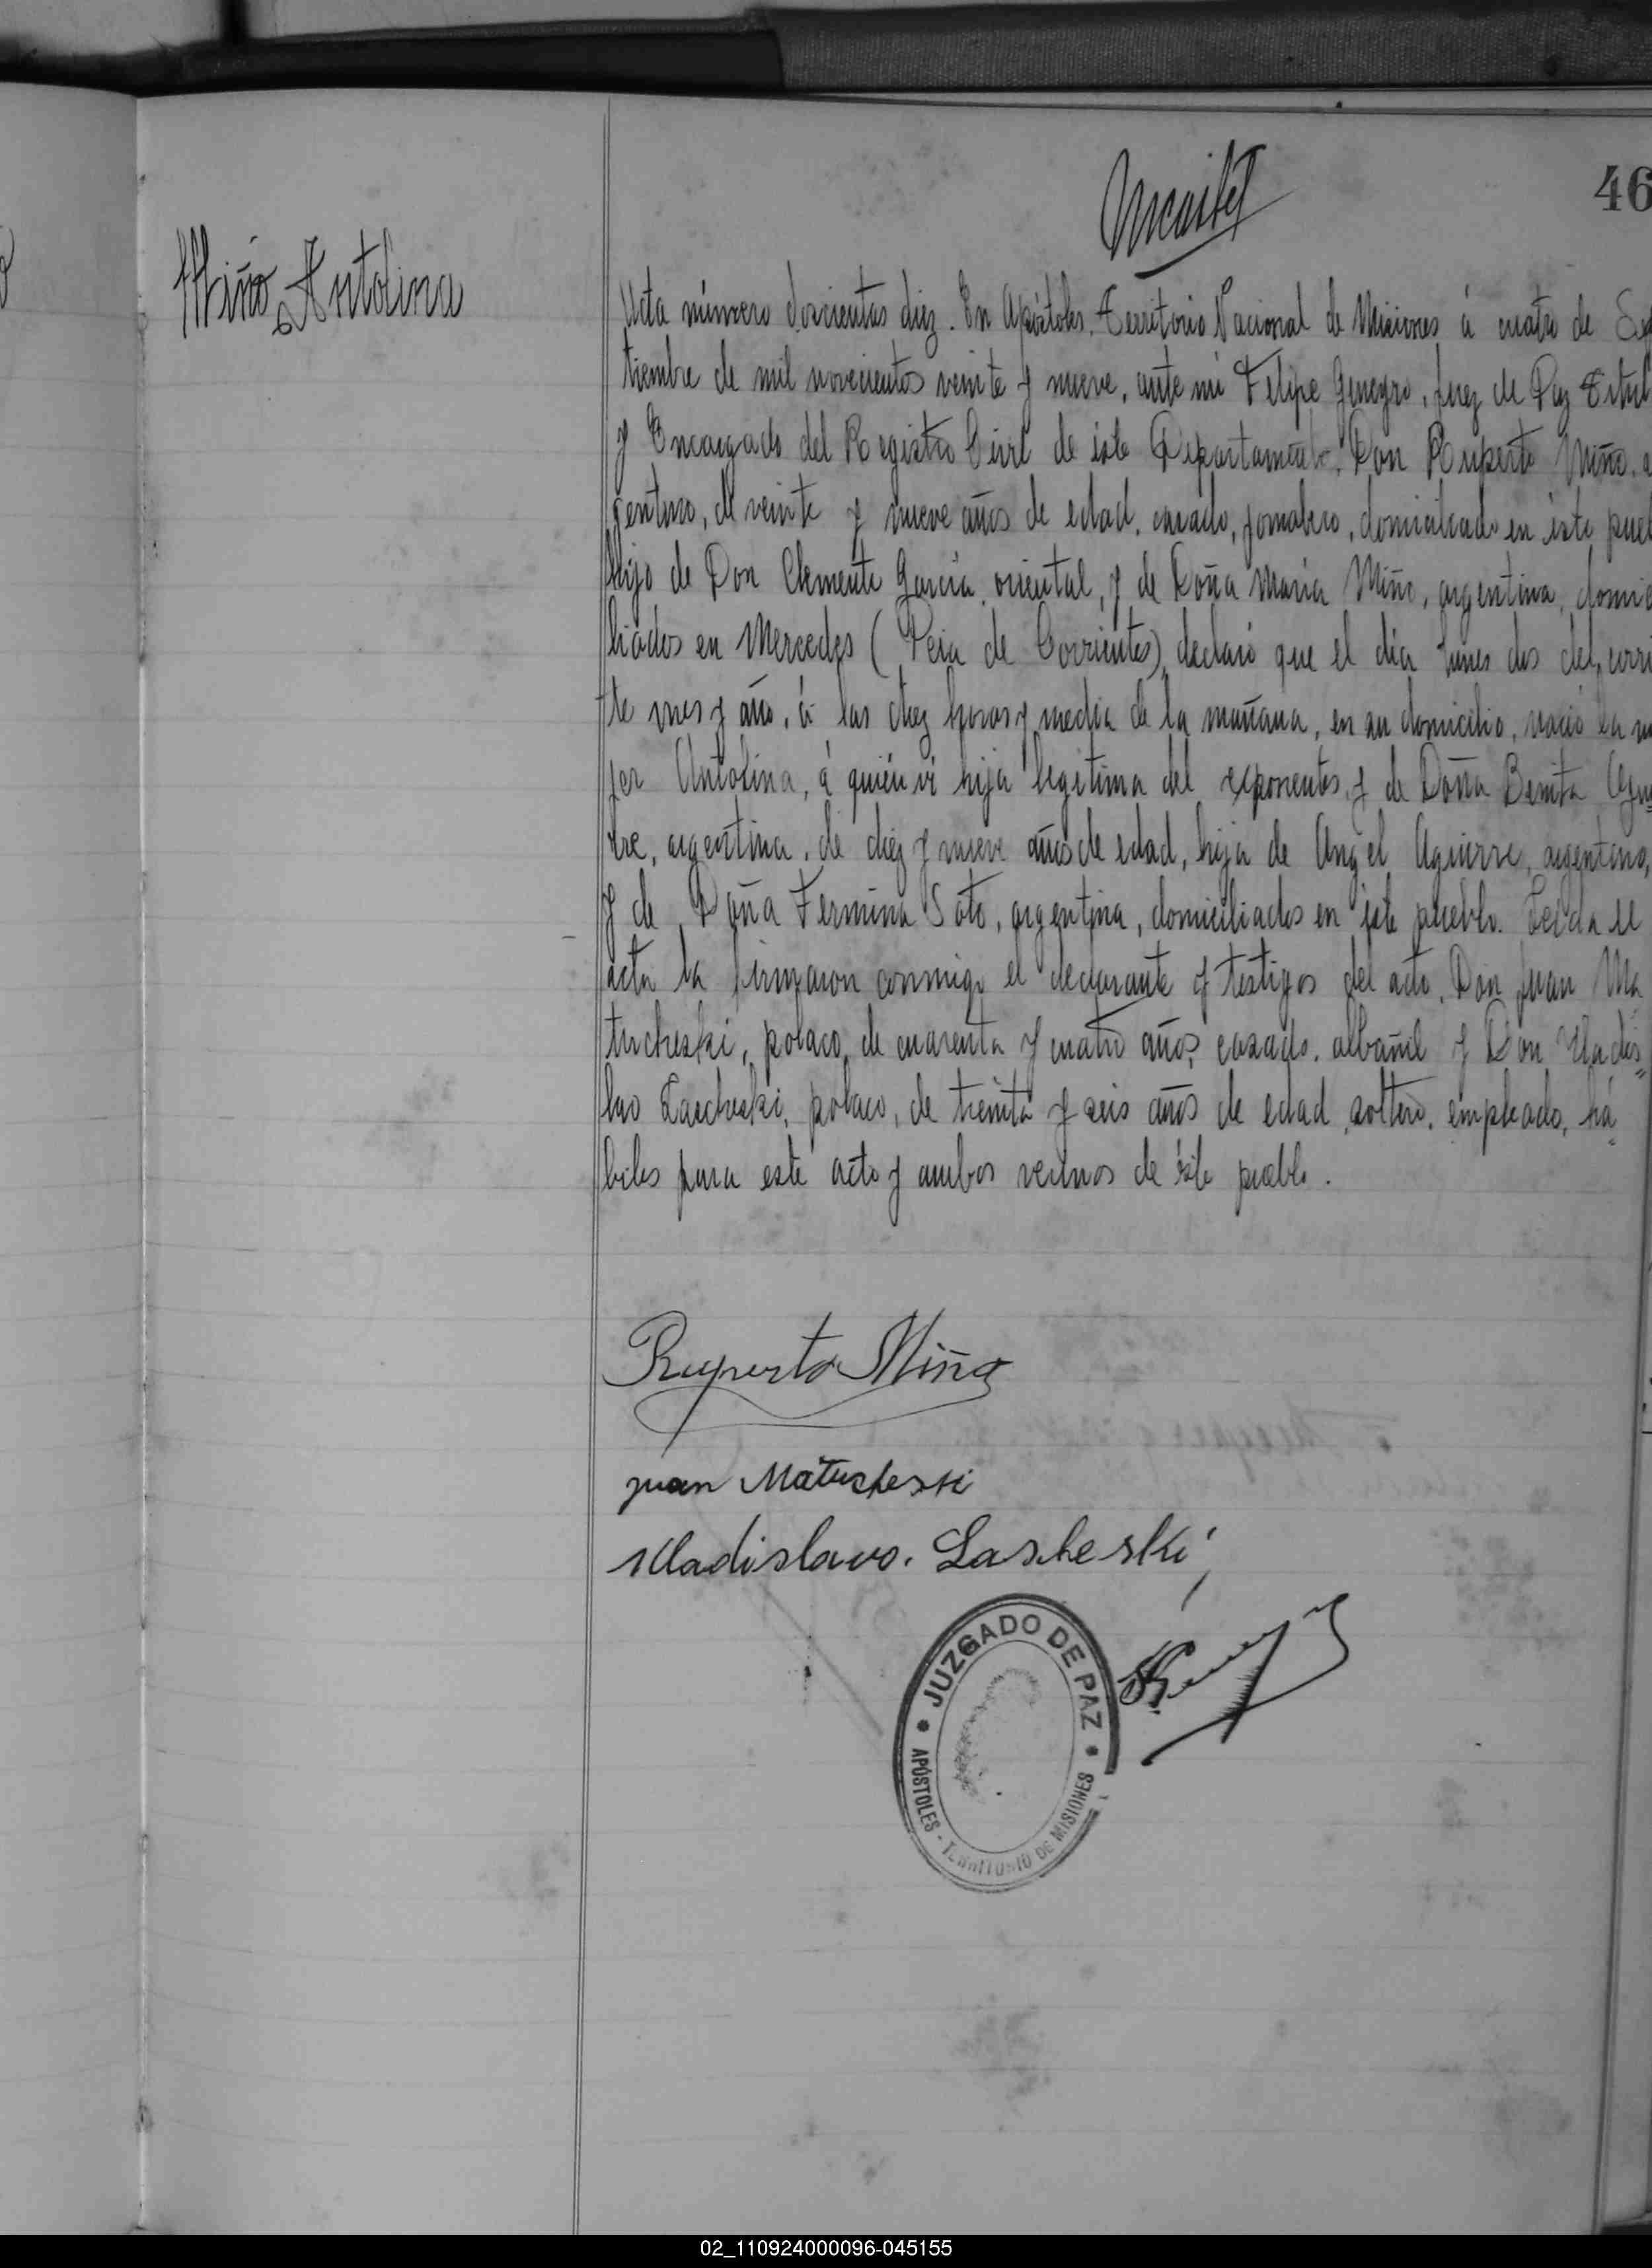 46
Miño Antolina
Acta número doscientos diez. En Apóstoles, Territorio Nacional de Misiones á cuatro de Sep
tiembre de mil novecientos veinte y nueve, ante mi Felipe Genegro, Juez de Paz Titul
y Encargado del Registro Civil de éste Departamento, Don Ruperto Miño, a
gentino, de veinte y nueve años de edad, casado, jornalero, domiciliado en éste pueb
hijo de Don Clemente García, oriental, y de Doña María Miño, argentina, domici
liados en Mercedes (Pcia de Corrientes), declaró que el día lunes dos del corri
te mes y año, á las diez horas y media de la mañana, en su domicilio, nació la mu
jer Antolina, á quién ví hija legítima del exponentes, y de Doña Benita Agui
rre, argentina, de diez y nueve años de edad, hija de Angel Aguirre, argentino,
y de Doña Fermina Soto, argentina, domiciliados en éste pueblo. Leída el
acta la firmaron conmigo el declarante y testigos del acto, Don Juan Ma
tucheski, polaco, de cuarenta y cuatro años, casado, albañil y Don Uladis=
lao Lascheski, polaco, de treinta y seis años de edad, soltero, empleado, há=
biles para este acto y ambos vecinos de éste pueblo.
Ruperto Miño
Juan Matucheski
Uladislavo. Lascheski
JUZGADO DE PAZ
APÓSTOLES - TERRITORIO DE MISIONES
02_110924000096-045155